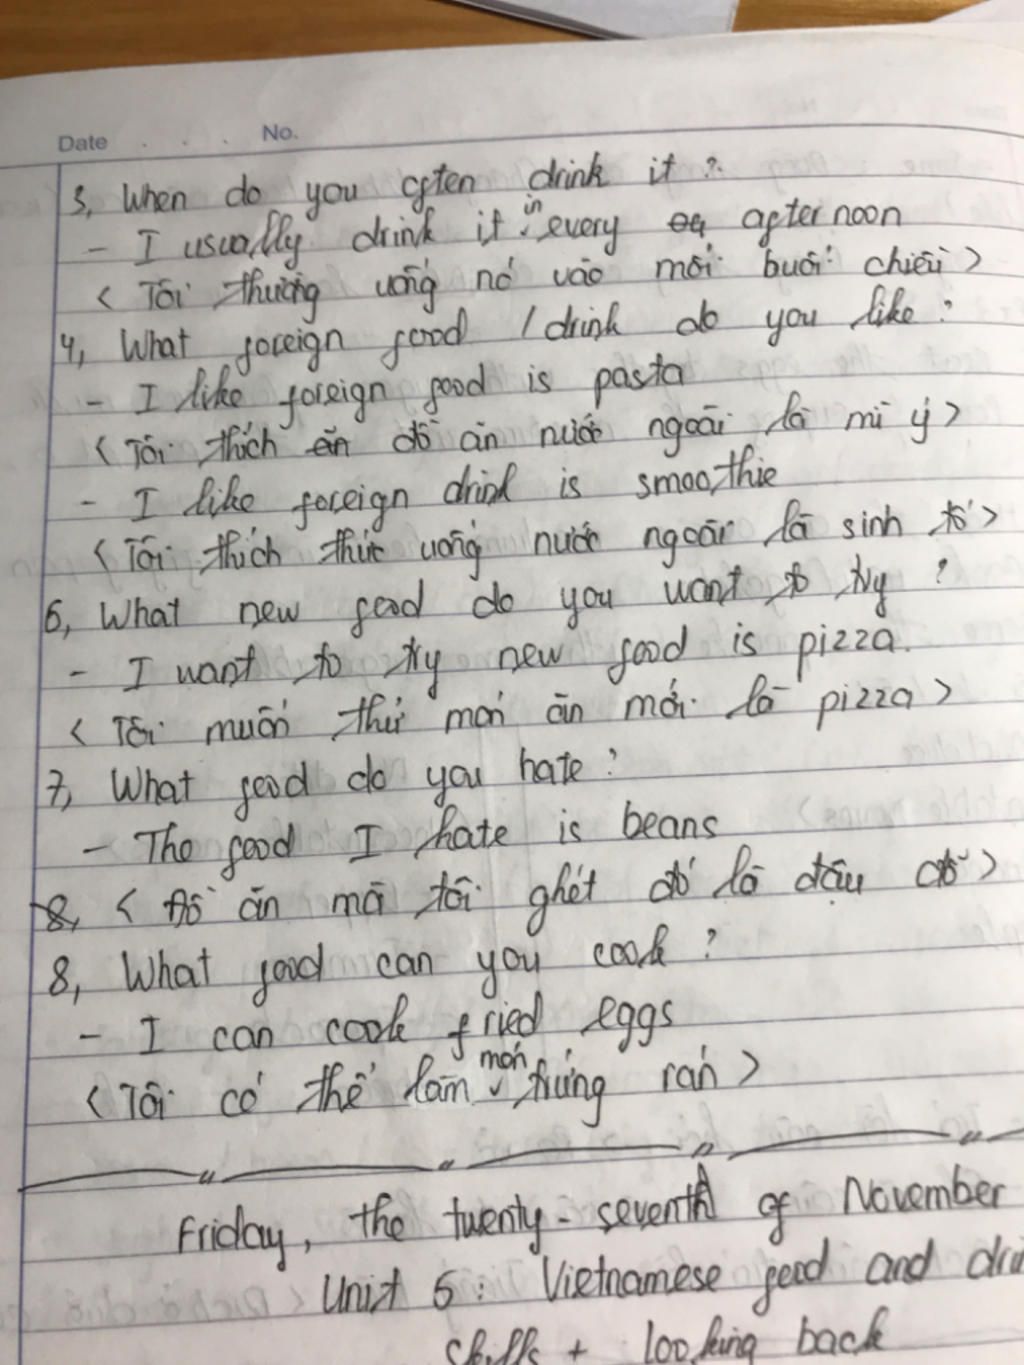 Date . . . No.
3, When do you often drink it ?
- I usually drink it in every afternoon
< Tôi thường uống nó vào mỗi buổi chiều >
4, What foreign food / drink do you like ?
- I like foreign food is pasta
< Tôi thích đồ ăn nước ngoài là mì ý >
- I like foreign drink is smoothie
< Tôi thích thức uống nước ngoài là sinh tố >
6, What new food do you want to try ?
- I want to try new food is pizza.
< Tôi muốn thử món ăn mới là pizza >
7, What food do you hate ?
- The food I hate is beans
8, < Đồ ăn mà tôi ghét đó là đậu đỗ >
8, What food can you cook ?
- I can cook fried eggs
< Tôi có thể làm món trứng rán >
Friday, the twenty - seventh of November
Unit 5 : Vietnamese food and
skills + looking back